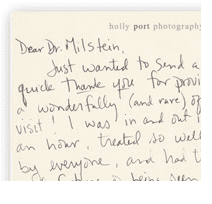 holly port photography
Dear Dr. Milstein,
Just wanted to send a
quick thank you for provi
a wonderfully (and rare) of
visit! I was in and out i
an hour, treated so well
by everyone, and had t
being seen